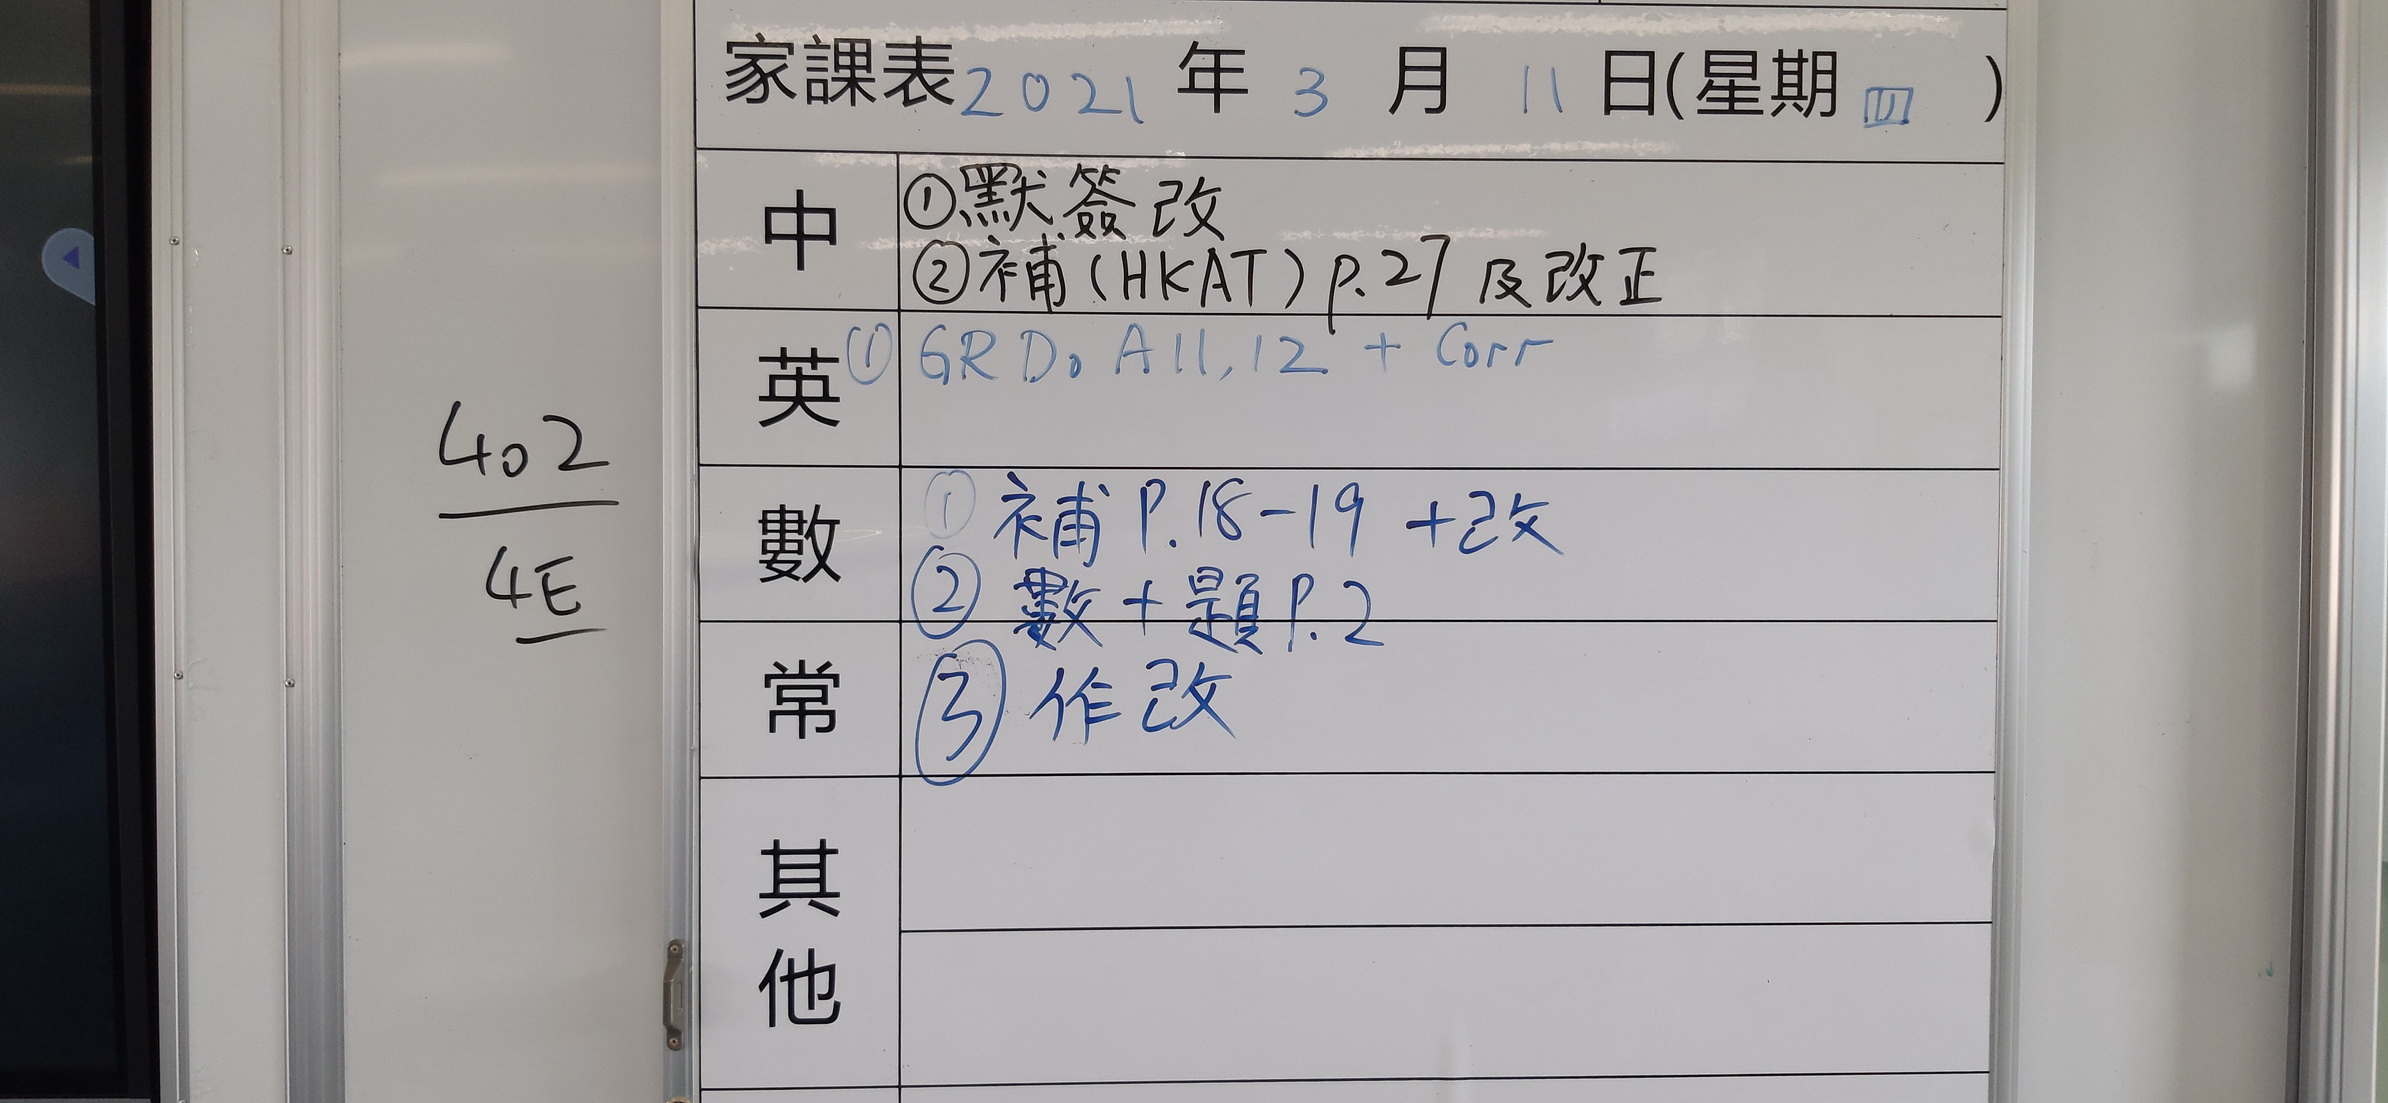 家課表2021年3月11日(星期四)
中
①默簽改
②補(HKAT)P.27及改正
英
①GRD。A11,12 + Corr
數
①補P.18-19 +改
②數+題P.2
常
③作改
其他
402
4E